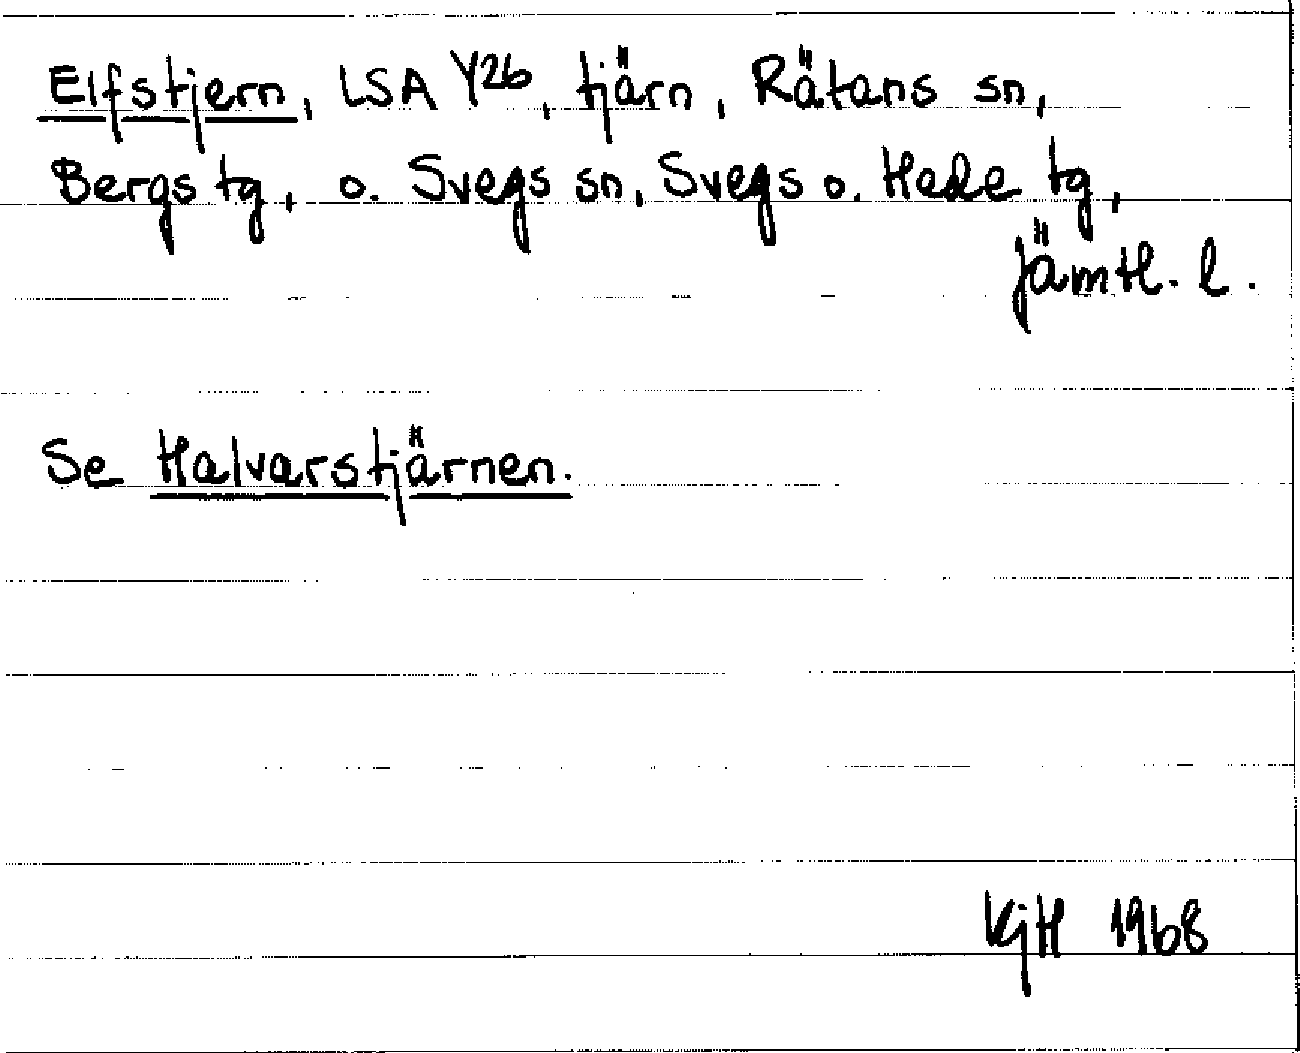 Elfstjern, LSA Y26, tjärn, Rätans sn,
Bergs tg, o. Svegs sn, Svegs o. Hede tg,
Jämtl. l.
Se Halvarstjärnen.
KjH 1968